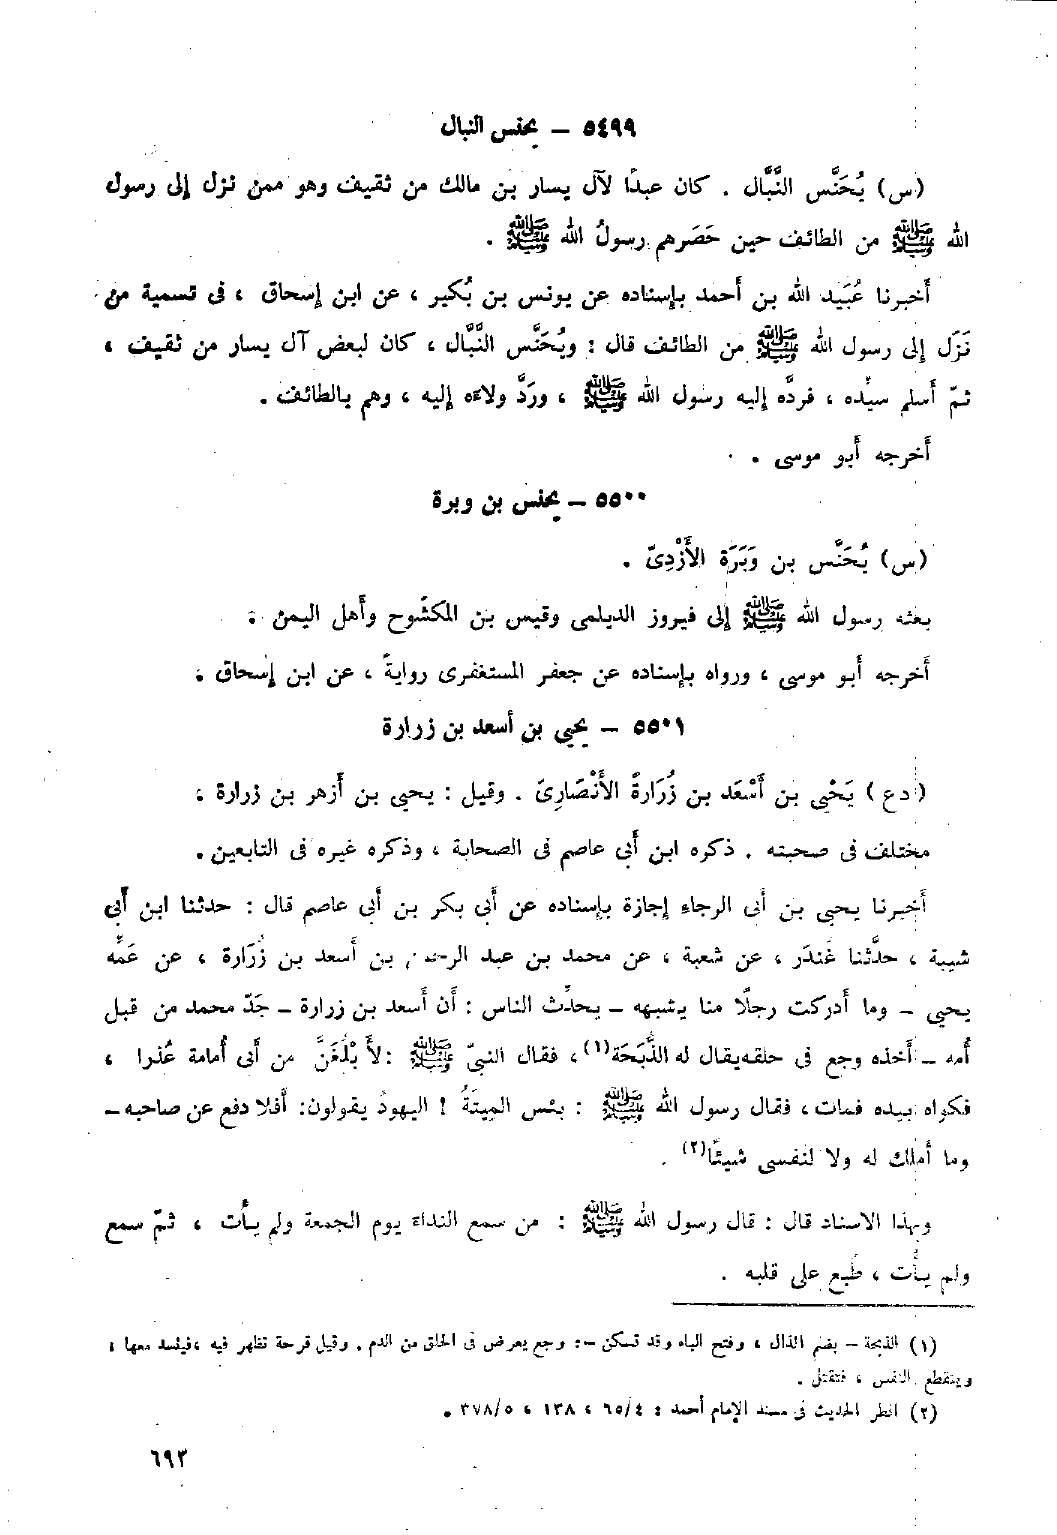 ٥٤٩٩ – يحنس النبال
(س) يُحَنَّس النَّبَّال . كان عبدًا لآل يسار بن مالك من ثقيف وهو ممن نزل إلى رسول
الله ﷺ من الطائف حين حَصَرهم رسولُ الله ﷺ .
أخبرنا عُبَيد الله بن أحمد بإسناده عن يونس بن بُكير ، عن ابن إسحاق ، فى تسمية من
نَزَل إلى رسول الله ﷺ من الطائف قال : ويُحَنَّس النَّبَّال ، كان لبعض آل يسار من ثقيف ،
ثمّ أسلم سيّده ، فردَّه إليه رسول الله ﷺ ، وردَّ ولاءه إليه ، وهم بالطائف .
أخرجه أبو موسى .
٥٥٠٠ – يحنس بن وبرة
(س) يُحَنَّس بن وَبَرَة الأَزْدِىّ .
بعثه رسول الله ﷺ إلى فيروز الديلمى وقيس بن المكشُوح وأهل اليمن :
أخرجه أبو موسى ، ورواه بإسناده عن جعفر المستغفرى روايةً ، عن ابن إسحاق :
٥٥٠١ – يحيى بن أسعد بن زرارة
(دع) يَحْيى بن أَسْعَد بن زُرَارةَ الأَنْصَارِىّ . وقيل : يحيى بن أزهر بن زرارة :
مختلف فى صحبته . ذكره ابن أبى عاصم فى الصحابة ، وذكره غيره فى التابعين .
أخبرنا يحيى بن أبى الرجاء إجازة بإسناده عن أبى بكر بن أبى عاصم قال : حدثنا ابن أبى
شيبة ، حدَّثنا غُنْدَر ، عن شعبة ، عن محمد بن عبد الرحمن بن أسعد بن زُرَارة ، عن عَمِّه
يحيى – وما أدركت رجلًا منا يشبهه – يحدِّث الناس : أن أسعد بن زرارة – جَدّ محمد من قبل
أُمه – أخذه وجع فى حلقه يقال له الذُّبَحَة(١) ، فقال النبىّ ﷺ : لأَبْلُغَنَّ من أبى أُمامة عُذرا ،
فكواه بيده فمات ، فقال رسول الله ﷺ : بئس الميتَةُ ! اليهودُ يقولون : أفلا دفع عن صاحبه –
وما أملك له ولا لنفسى شيئًا(٢) .
وبهذا الاسناد قال : قال رسول الله ﷺ : من سمع النداءَ يوم الجمعة ولم يأْت ، ثمّ سمع
ولم يأْت ، طُبع على قلبه .
(١) الذبحة – بضم الذال ، وفتح الباء وقد تسكن – : وجع يعرض فى الحلق من الدم . وقيل قرحة تظهر فيه ، فينسد معها ،
وينقطع النفس ، فتقتل .
(٢) انظر الحديث فى مسند الإمام أحمد : ٤/٦٥ ، ١٣٨ ، ٥/٣٧٨ .
٦٩٣